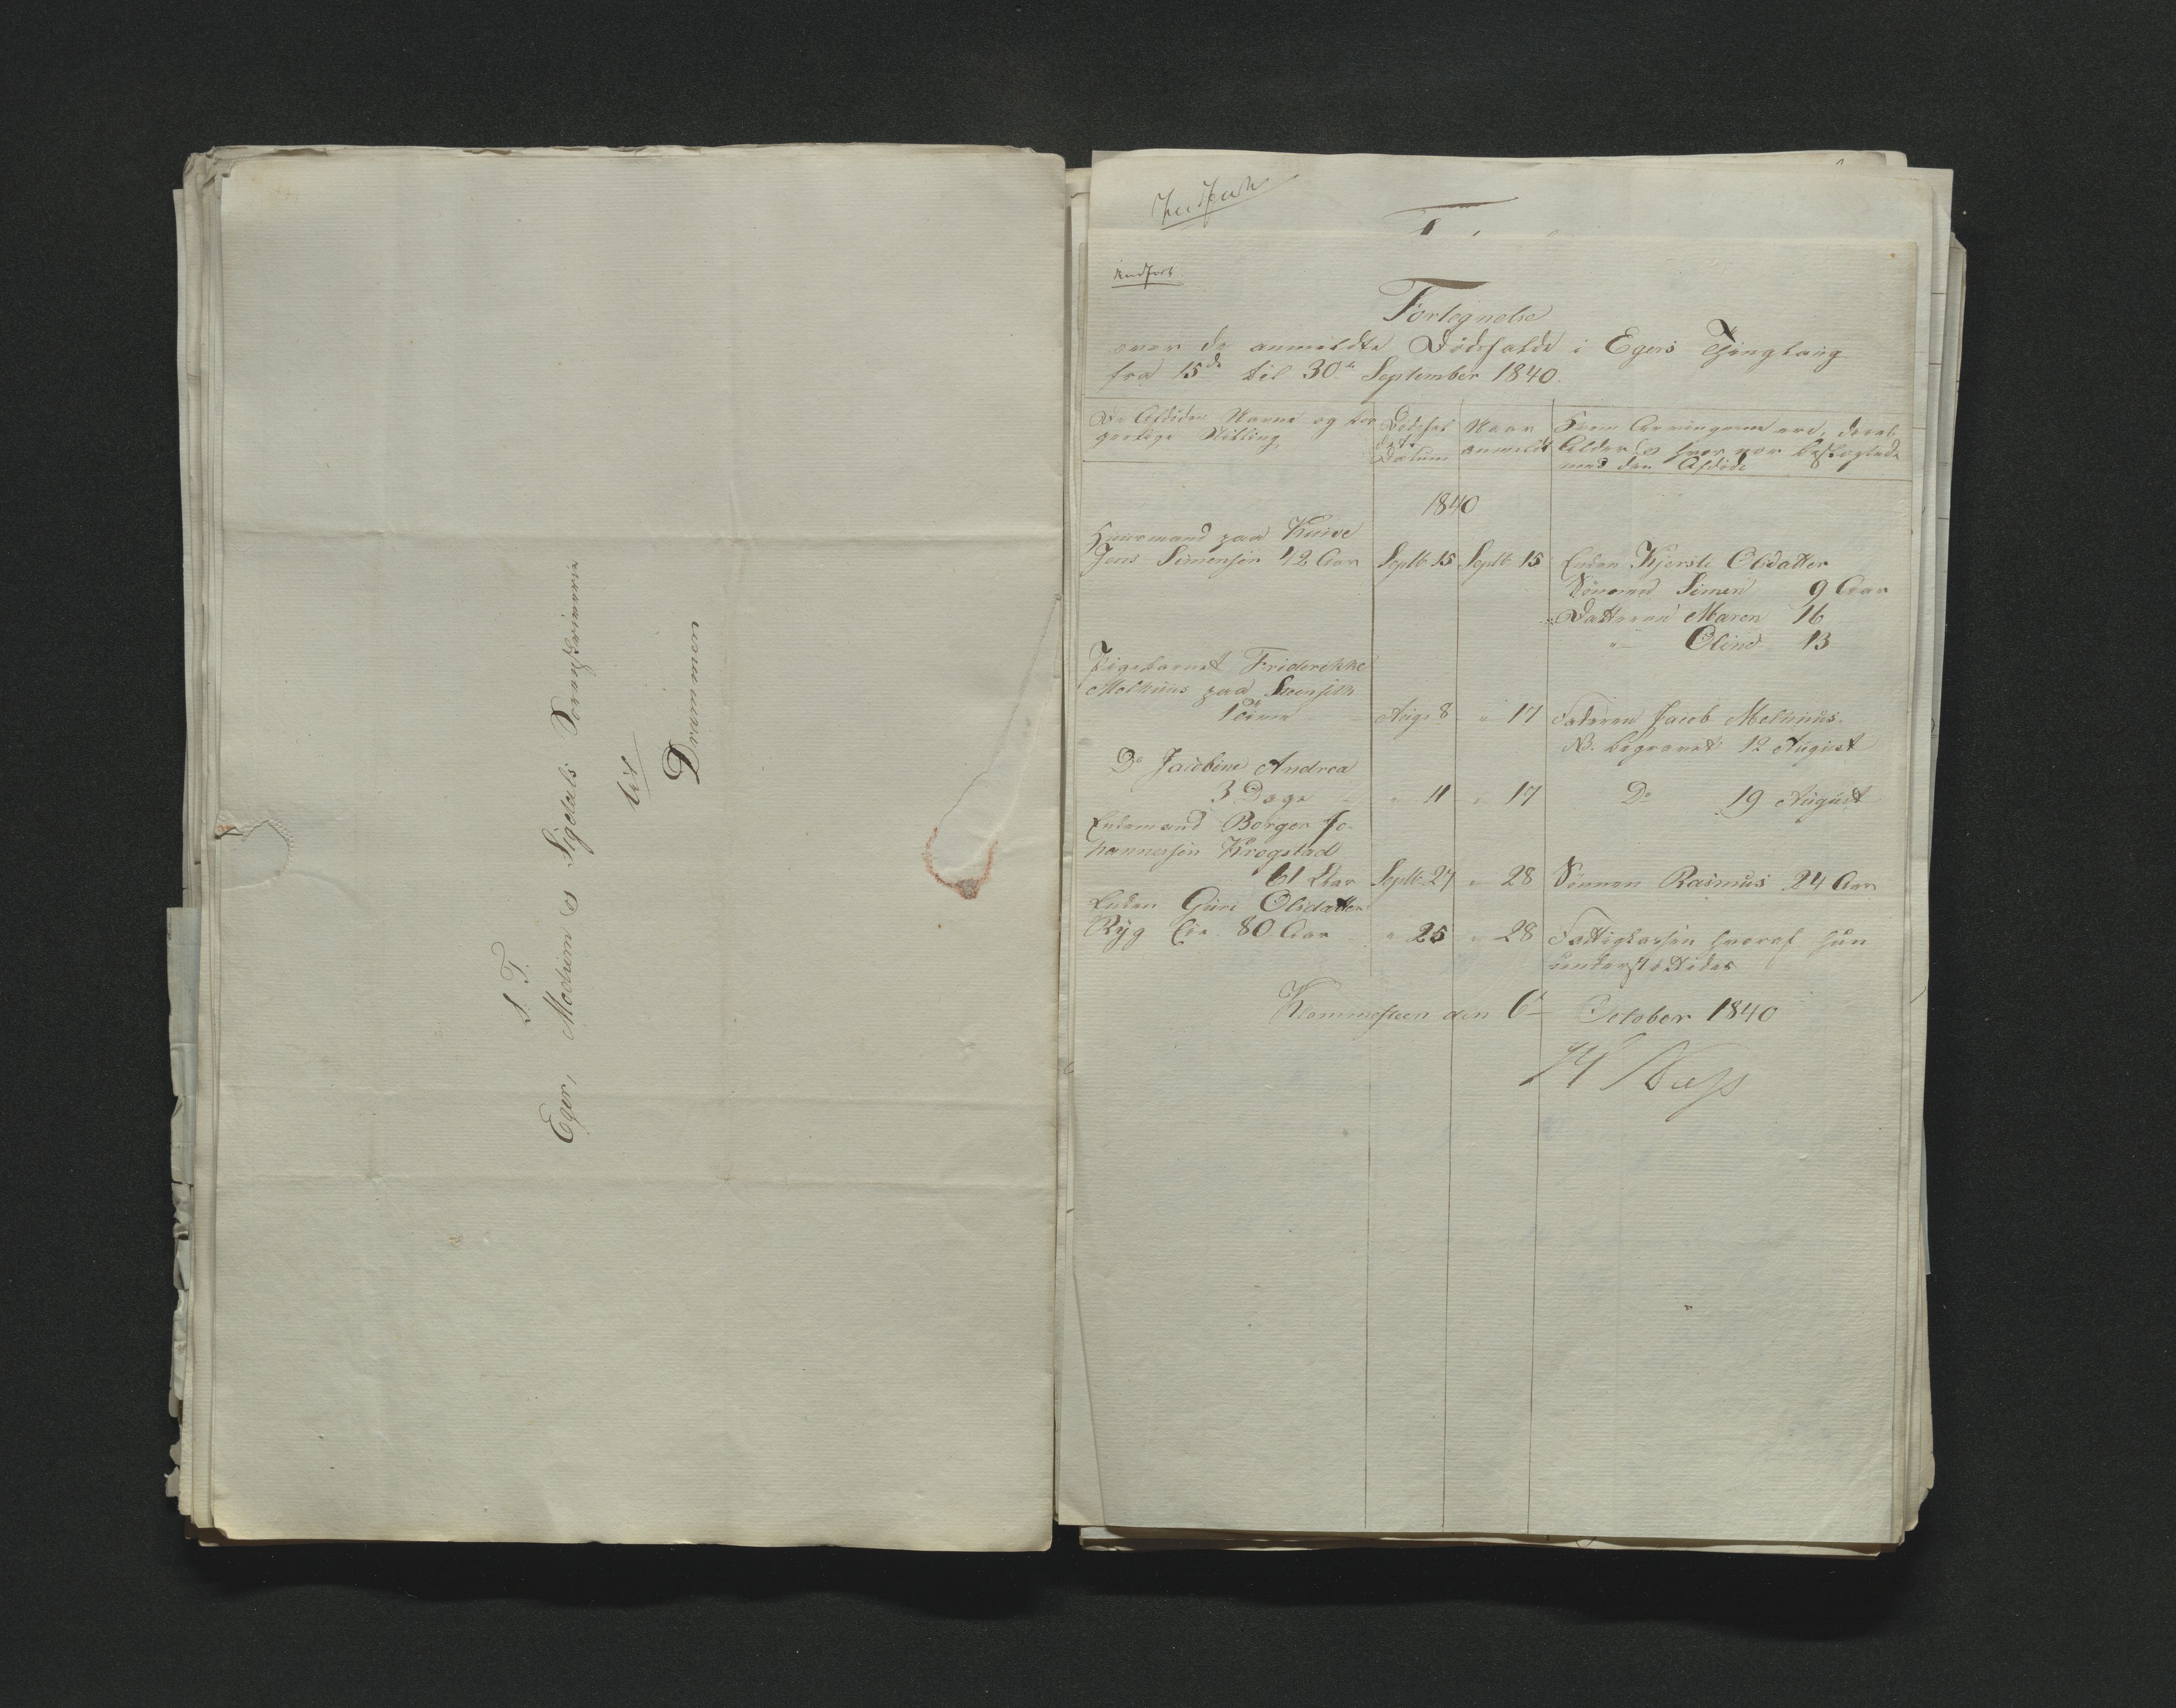 S. T.
Eger, Modum og Sigdals Sorenskriverie
til
Drammen
Indført
Indført
Fortegnelse
over de anmeldte Dödsfalde i Egers Thinglaug
fra 15de til 30te September 1840.
De Afdödes Navne og bor
gerlige Stilling
Dödsfal
dets
Datum
Naar
anmeldt
Hvem Arvingerne ere, deres
Alder og hvor nær beslægtede
med den Afdöde
1840
Huusmand paa Knive
Jens Simensen 42 Aar Septb 15 Septb 15 Enken Kjersti Olsdatter
Sönnen Simen 9 Aar
Datteren Maren 16
" Oline 13
Pigebarnet Friderikke
Melhuus paa
Aug. 8 " 17 Faderen Jacob Melhuus.
NB. begravet 12 August
Do Jacobine Andrea
3 Dage " 11 " 17 Do 19 August
Enkemand Borger Jo-
hannessen Krogstad
61 Aar Septb 27 " 28 Sönnen Rasmus 24 Aar
Enken Guri Olsdatter
Ryg Cir. 80 Aar " 25 " 28 Fattigkassen hvoraf hun
understöttedes
den 6te October 1840